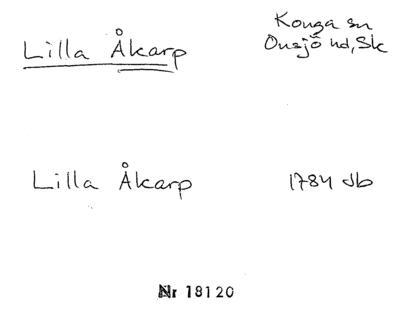 Lilla Åkarp
Konga sn
Onsjö hd, Sk
Lilla Åkarp
1784 Jb
Nr 18120